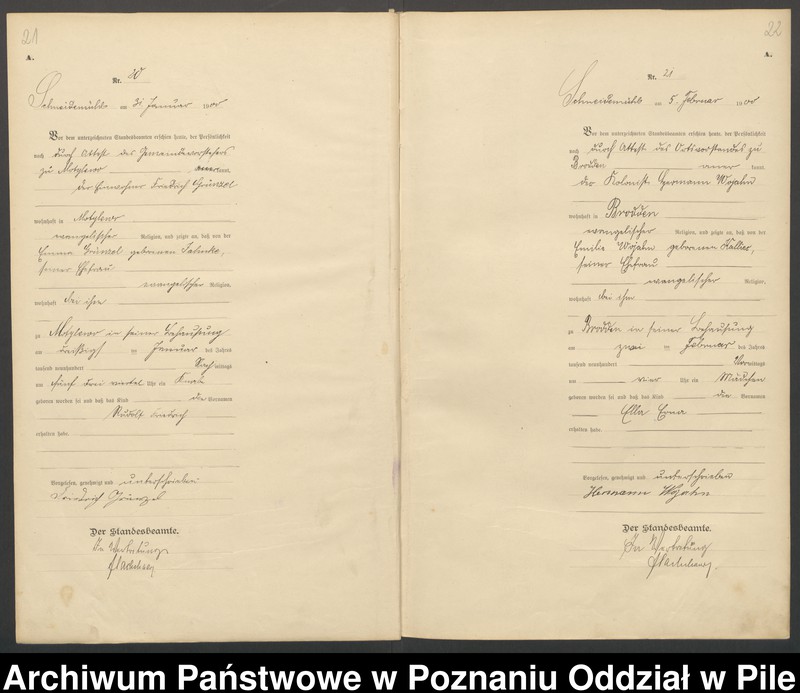 21
A.
Nr. 20
Schneidemühl am 31 Januar 1900
Vor dem unterzeichneten Standesbeamten erschien heute, der Persönlichkeit
nach durch Attest des Gemeindevorstehers
zu Motylewo kannt,
der Einwohner Friedrich Grünzel
wohnhaft in Motylewo
evangelischer Religion, und zeigte an, daß von der
Emma Grünzel geborenen
seiner Ehefrau
evangelischer Religion,
wohnhaft bei ihm
zu Motylewo in seiner Behausung
am dreißigsten Januar des Jahres
tausend neunhundert Nachmittags
um fünf drei viertel Uhr ein Knabe
geboren worden sei und daß das Kind die Vornamen
Rudolf Friedrich
erhalten habe.
Vorgelesen, genehmigt und unterschrieben
Friedrich Grünzel
Der Standesbeamte.
In Vertretung
22
A.
Nr. 21
Schneidemühl am 5. Februar 1900
Vor dem unterzeichneten Standesbeamten erschien heute, der Persönlichkeit
nach durch Attest des Ortsvorstandes zu
Brodden aner kannt,
der Kolonist Hermann Wojahn
wohnhaft in Brodden
evangelischer Religion, und zeigte an, daß von der
Emilie Wojahn geborenen
seiner Ehefrau
evangelischer Religion,
wohnhaft bei ihm
zu Brodden in seiner Behausung
am zwei ten Februar des Jahres
tausend neunhundert Vormittags
um vier Uhr ein Mädchen
geboren worden sei und daß das Kind die Vornamen
Ella Erna
erhalten habe.
Vorgelesen, genehmigt und unterschrieben
Hermann Wojahn
Der Standesbeamte.
In Vertretung
Archiwum Państwowe w Poznaniu Oddział w Pile